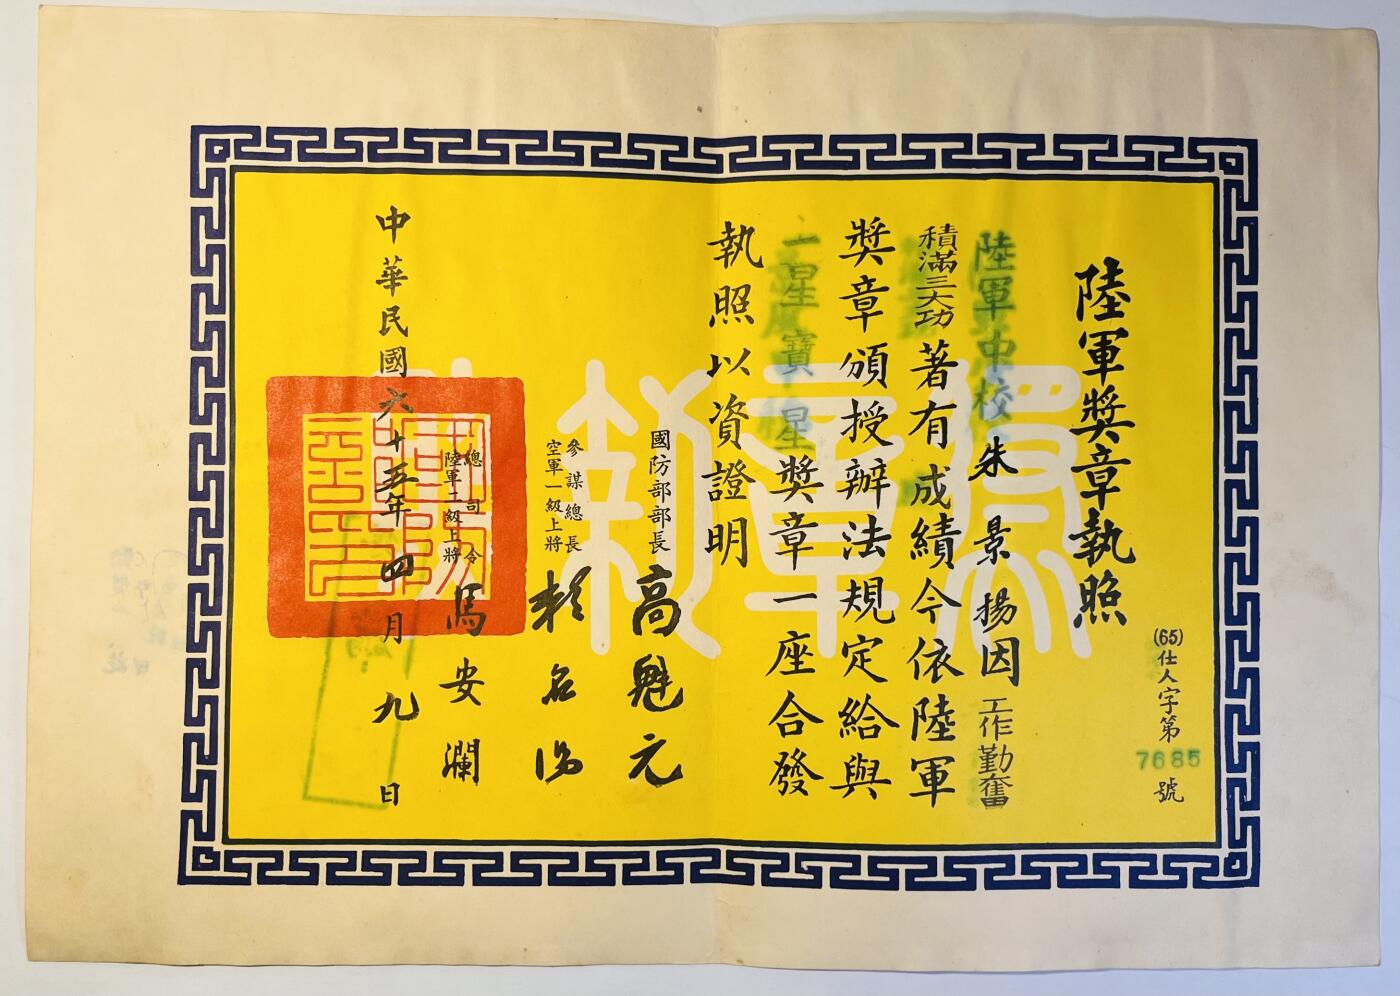 (65)仕人字第7685號
陸軍獎章執照
陸軍中校朱景揚因工作勤奮
積滿三大功著有成績今依陸軍
獎章頒授辦法規定給與
星寶星獎章一座合發
執照以資證明
國防部部長高魁元
參謀總長
空軍一級上將
賴名湯
總司令
陸軍二級上將
馬安瀾
中華民國六十五年四月九日